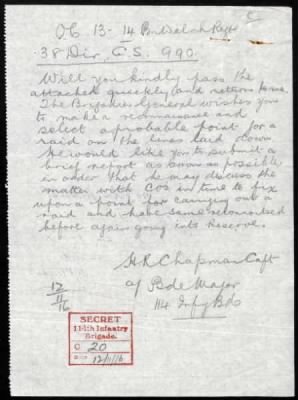 C
OC 13 - 14 Bn Welsh Regt
38 Div. C.S. 990.
Will you kindly pass the
attached quickly and return same.
The Brigadier General wishes you
to make a reconnaisance and
select a probable point for a
raid on the lines laid down
He would like you to submit a
brief report as soon as possible
in order that he may discuss the
matter with COs in time to fix
upon a point for carrying out a
raid and have same reconnoitred
before again going into Reserve.
H R Chapman Capt
a/ Bde Major
114 Infy Bde
12/11/16
SECRET
114th Infantry
Brigade.
C 20
12/11/16